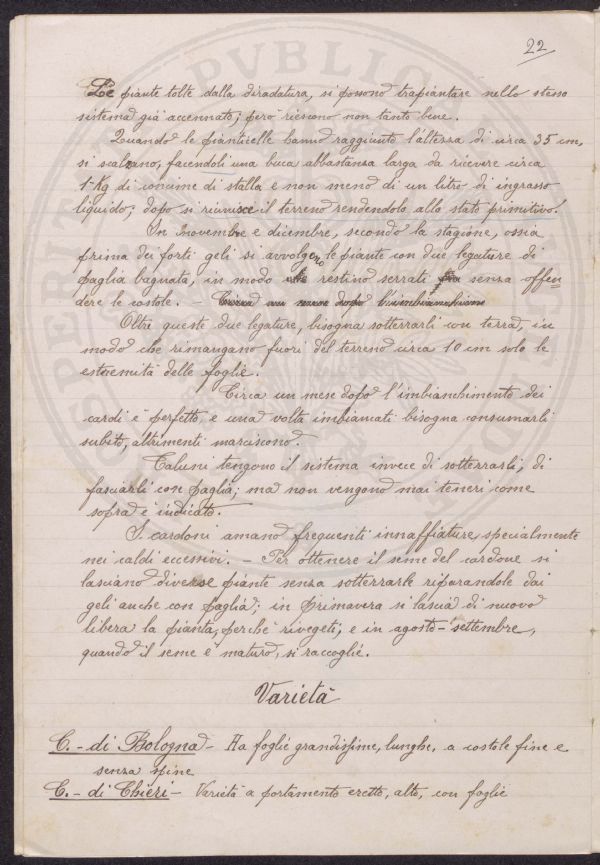 22
Le piante tolte dalla diradatura, si possono trapiantare nello stesso
sistema già accennato; pero riescono non tanto bene.
Quando le pianticelle hanno raggiunto l'altezza di circa 35 cm,
si scalzano, facendoli una buca abbastanza larga da ricevere circa
1 Kg di concime di stalla e non meno di un litro di ingrasso
liquido; dopo si riunisce il terreno rendendolo allo stato primitivo.
In novembre e dicembre, secondo la stagione, ossia
prima dei forti geli si avvolgono le piante con due legature di
paglia bagnata, in modo restino serrati senza offen-
dere le costole. –
Oltre queste due legature, bisogna sotterrarli con terra, in
modo che rimangano fuori del terreno circa 10 cm solo le
estremità delle foglie.
Circa un mese dopo l'imbianchimento dei
cardi è perfetto, e una volta imbiancati bisogna consumarli
subito, altrimenti marciscono.
Taluni tengono il sistema invece di sotterrarli, di
fasciarli con paglia; ma non vengono mai teneri come
sopra è indicato.
I cardoni amano frequenti innaffiature, specialmente
nei caldi eccessivi. – Per ottenere il seme del cardone si
lasciano diverse piante senza sotterrarle riparandole dai
geli anche con paglia; in primavera si lascia di nuovo
libera la pianta, perchè rivegeti, e in agosto – settembre,
quando il seme è maturo, si raccoglie.
Varietà
C. – di Bologna – Ha foglie grandissime, lunghe, a costole fine e
senza spine
C. – di Chieri – Varietà a portamento eretto, alto, con foglie